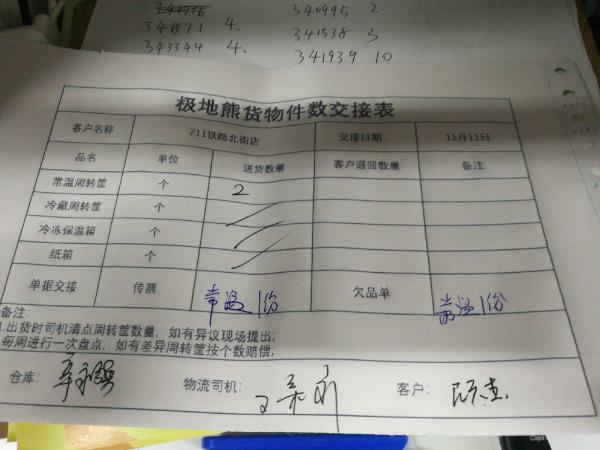 341776 340995 2.
341871 4. 341538 3
343344 4. 341939 10
极地熊货物件数交接表
客户名称 711铁路北街店 交接日期: 11月11日
品名 单位 送货数量 客户退回数量 备注
常温周转筐 个 2
冷藏周转筐 个
冷冻保温箱 个
纸箱 个
单据交接 传票 常温1份 欠品单 常温1份
备注:
1.出货时司机清点周转筐数量，如有异议现场提出;
每周进行一次盘点，如有差异周转筐按个数赔偿;
仓库: 物流司机: 客户: